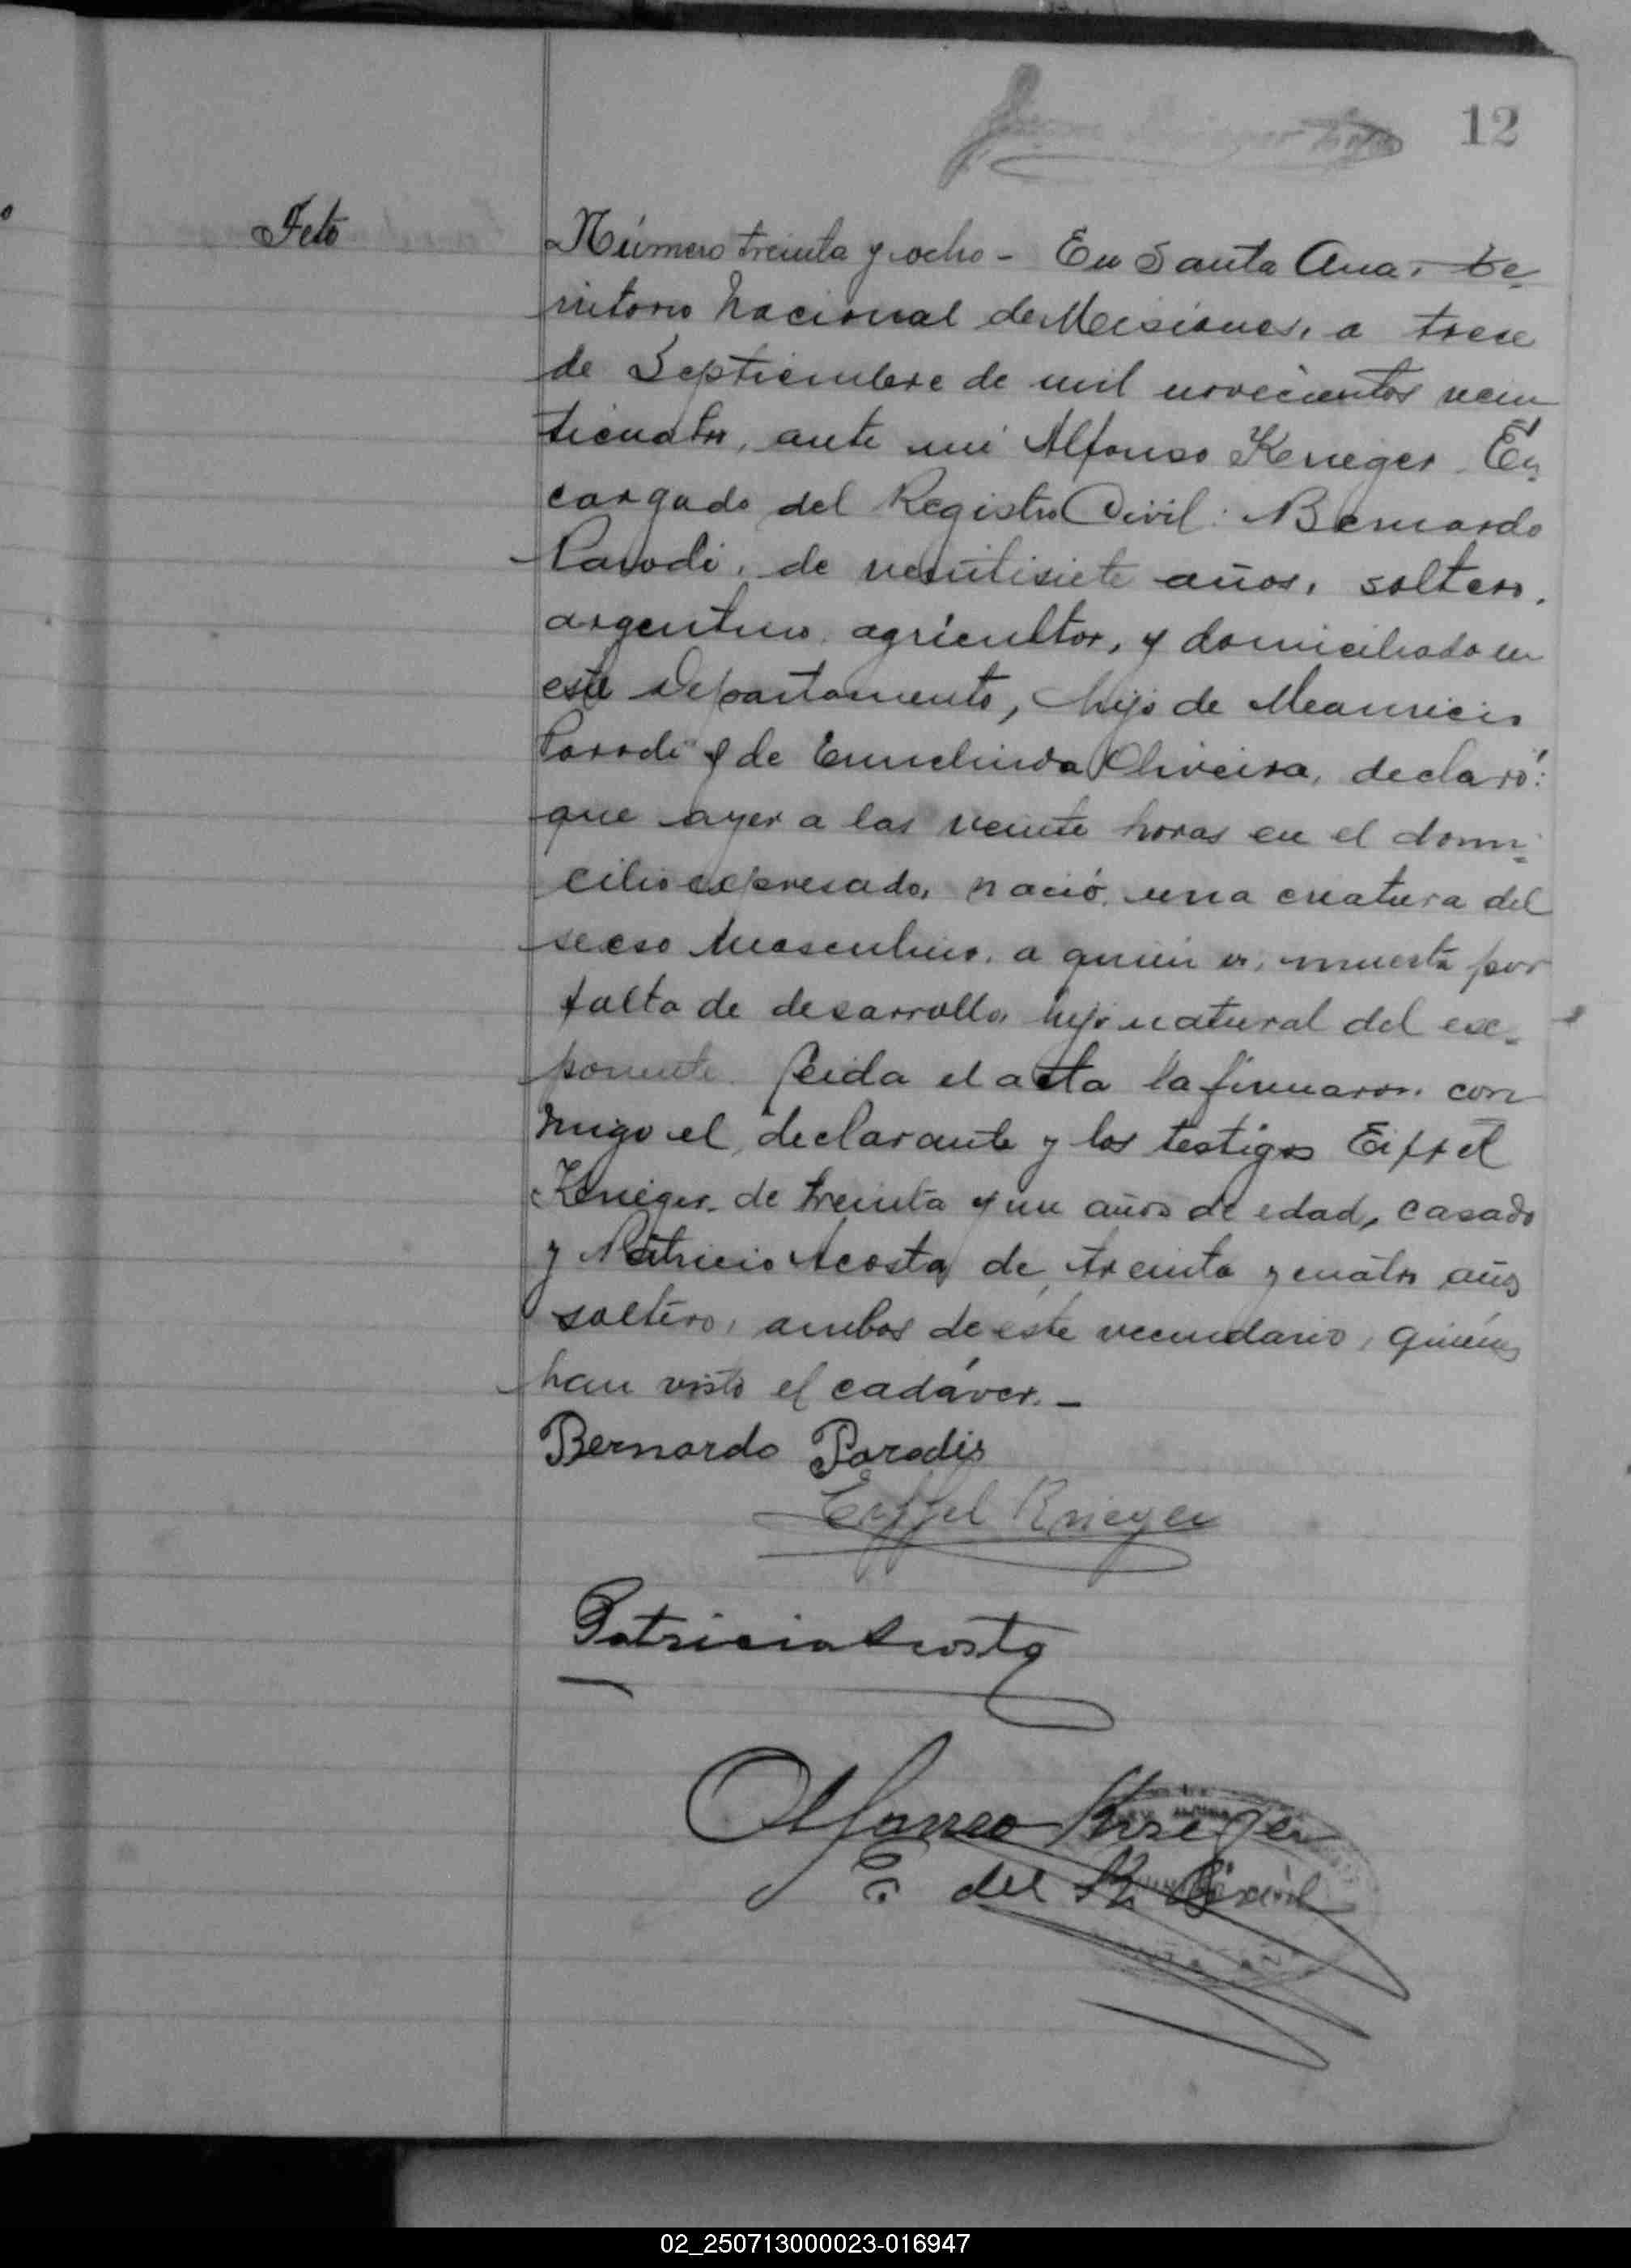 12
Feto
Número treinta y ocho - En Santa Ana, te-
rritorio Nacional de Misiones, a trece
de Septiembre de mil novecientos vein
ticuatro, ante mi Alfonso Krieger En-
cargado del Registro Civil: Bernardo
Parodi, de veintisiete años, soltero,
argentino, agricultor, y domiciliado en
este Departamento, hijo de Mauricio
Parodi y de Ermelinda Oliveira, declaró:
que ayer a las veinte horas en el domi-
cilio expresado, nació una creatura del
secso Masculino, a quien vi, muerta por
falta de desarrollo, hijo natural del ex-
ponente. Leida el acta la firmaron con
migo el declarante y los testigos Eiffel
Krieger de treinta y un años de edad, casado
y Patricio Acosta de treinta y cuatro años
soltero, ambos de este vecindario, quienes
han visto el cadáver. -
Bernardo Parodis
Eiffel Krieger
Patricio Acosta
Alfonso Krieger
E. del R. Civil
02_250713000023-016947